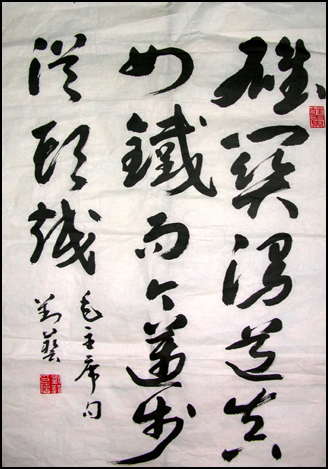 雄關漫道真
如鐵而今邁步
從頭越
毛主席句
劉藝